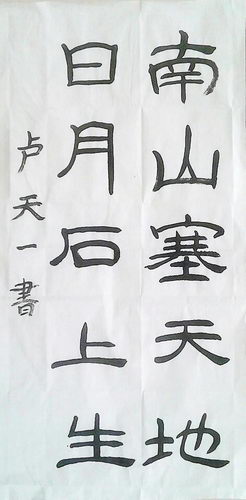 南山塞天地
日月石上生
卢天一書